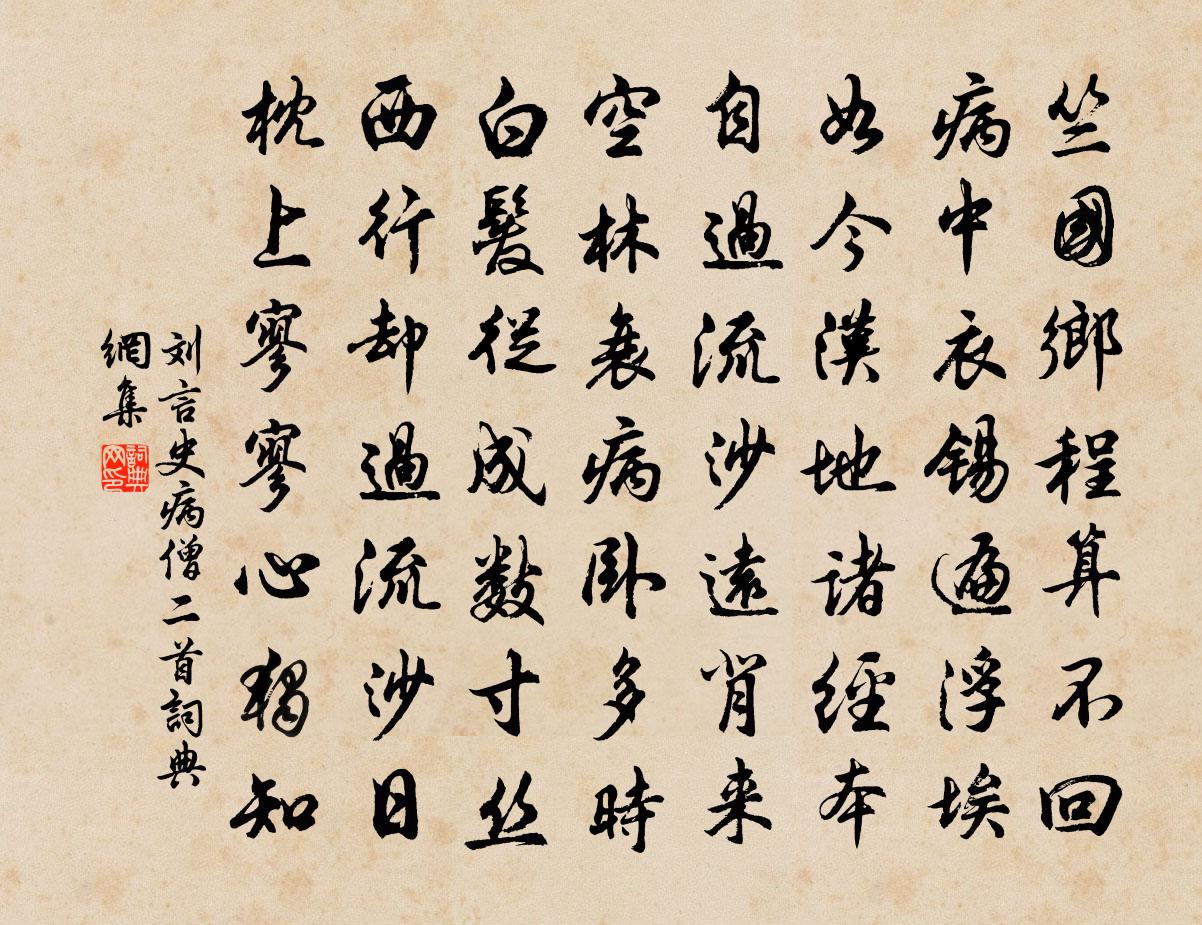 竺國鄉程算不回
病中衣錫遍浮埃
如今漢地諸經本
自過流沙遠背来
空林衰病卧多時
白髮從成數寸丝
西行却過流沙日
枕上寥寥心獨知
刘言史病僧二首詞典
網集
詞典
网印